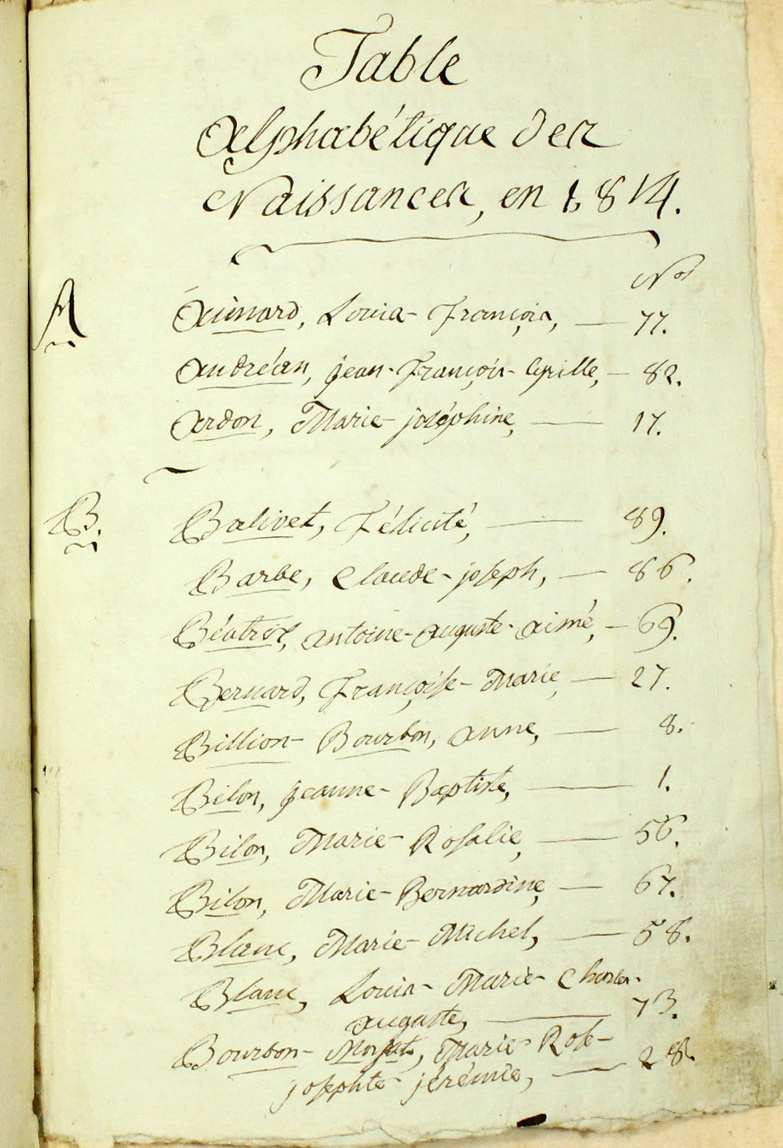 Table
Alphabétique des
Naissances, en 1814.
Nos
A
Aimard, Louis-François, — 77.
Audréan, Jean-François-Cyrille, — 82.
Ardon, Marie-joséphine, — 17.
B.
Balivet, Félicité, — 89.
Barbe, Claude-joseph, — 86.
Béatrix, antoine-auguste-aimé, — 69.
Bernard, Françoise-Marie, — 27.
Billion-Bourbon, anne, — 8.
Bilon, jeanne-Baptiste, — 1.
Bilon, Marie-Rosalie, — 56.
Bilon, Marie-Bernardine, — 67.
Blanc, Marie-Michel, — 58.
Blanc, Louis-Marie-Charles-
auguste, — 73.
Bourbon-, Marie-Rose-
josephte-jérémie, — 28.